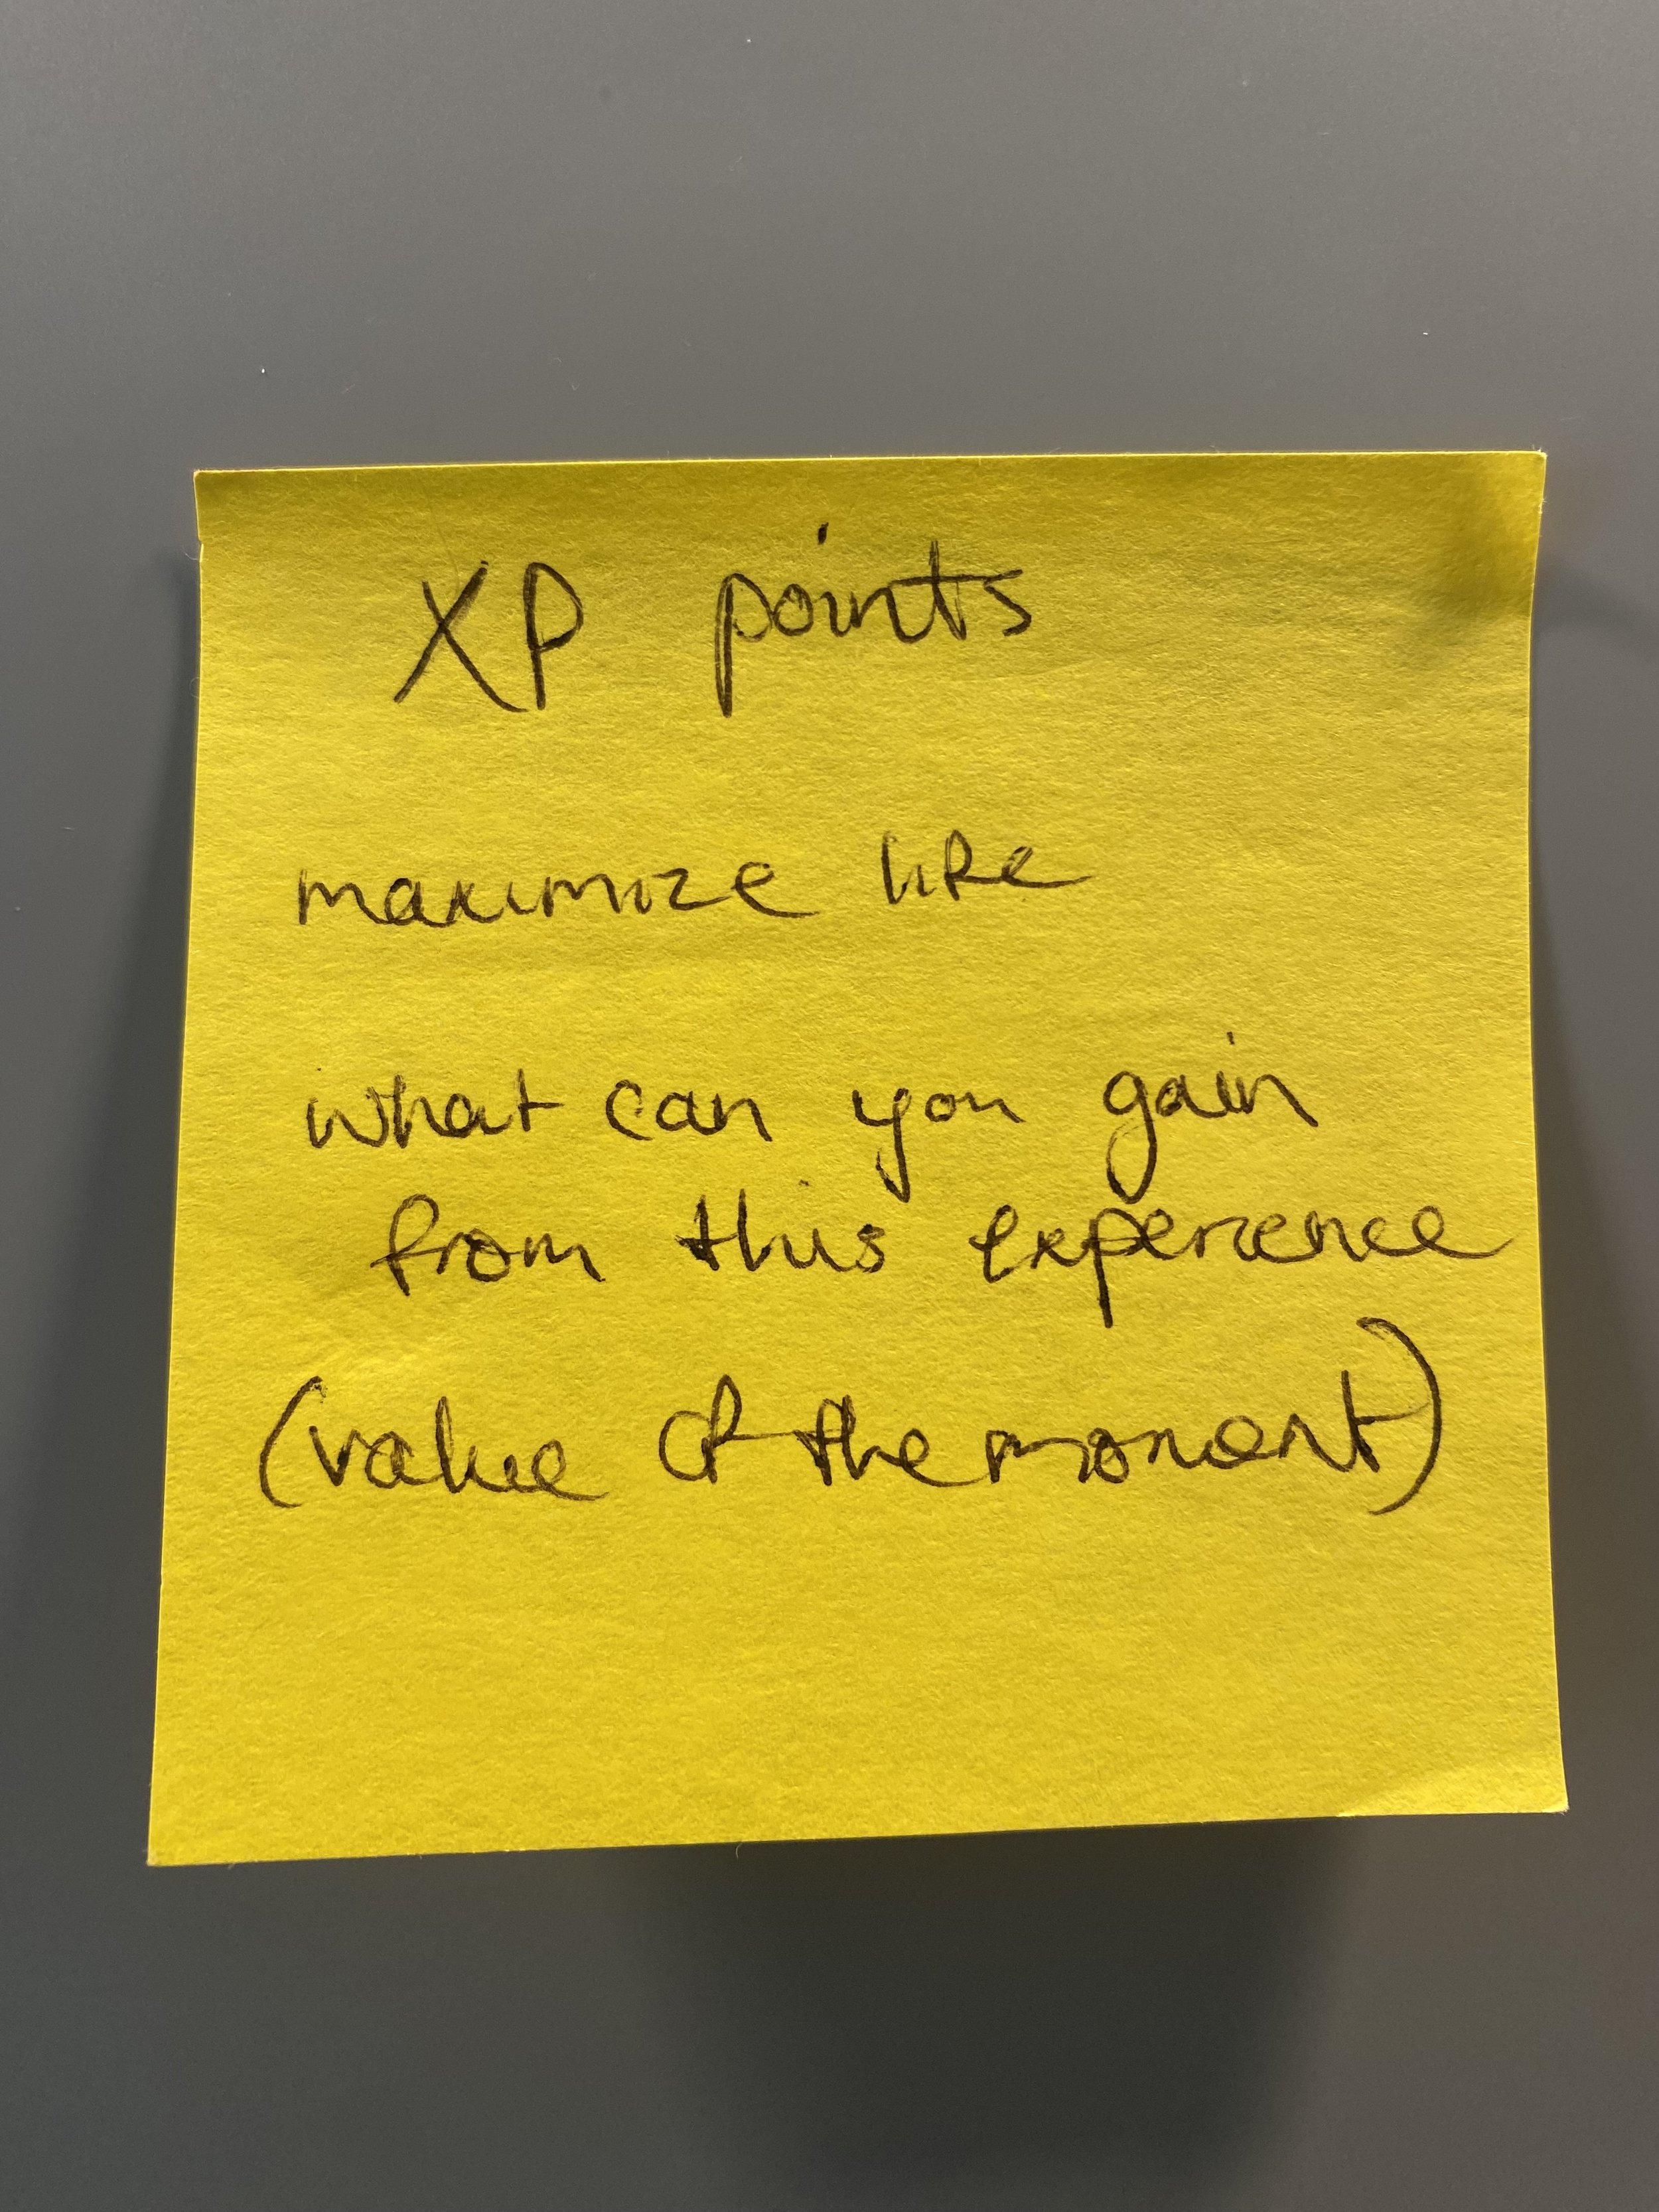 XP points
maximize life
what can you gain
from this experience
(value of the moment)